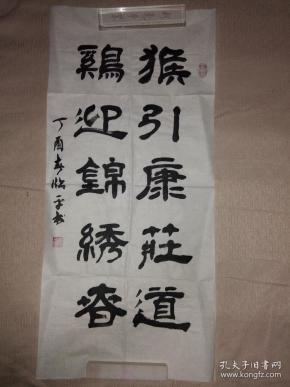 猴引康莊道
鷄迎錦綉春
丁酉春
孔夫子旧书网